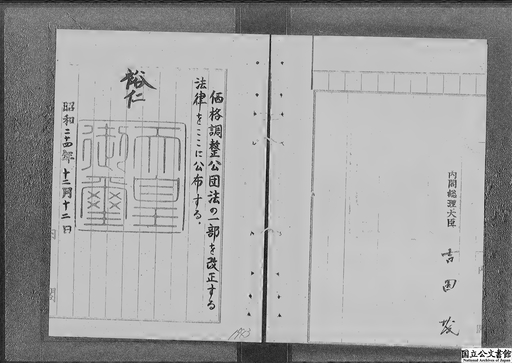 価格調整公団法の一部を改正する
法律をここに公布する。
裕仁
天皇
御璽
昭和二十四年十二月十二日
内閣総理大臣 吉田茂
国立公文書館
National Archives of Japan